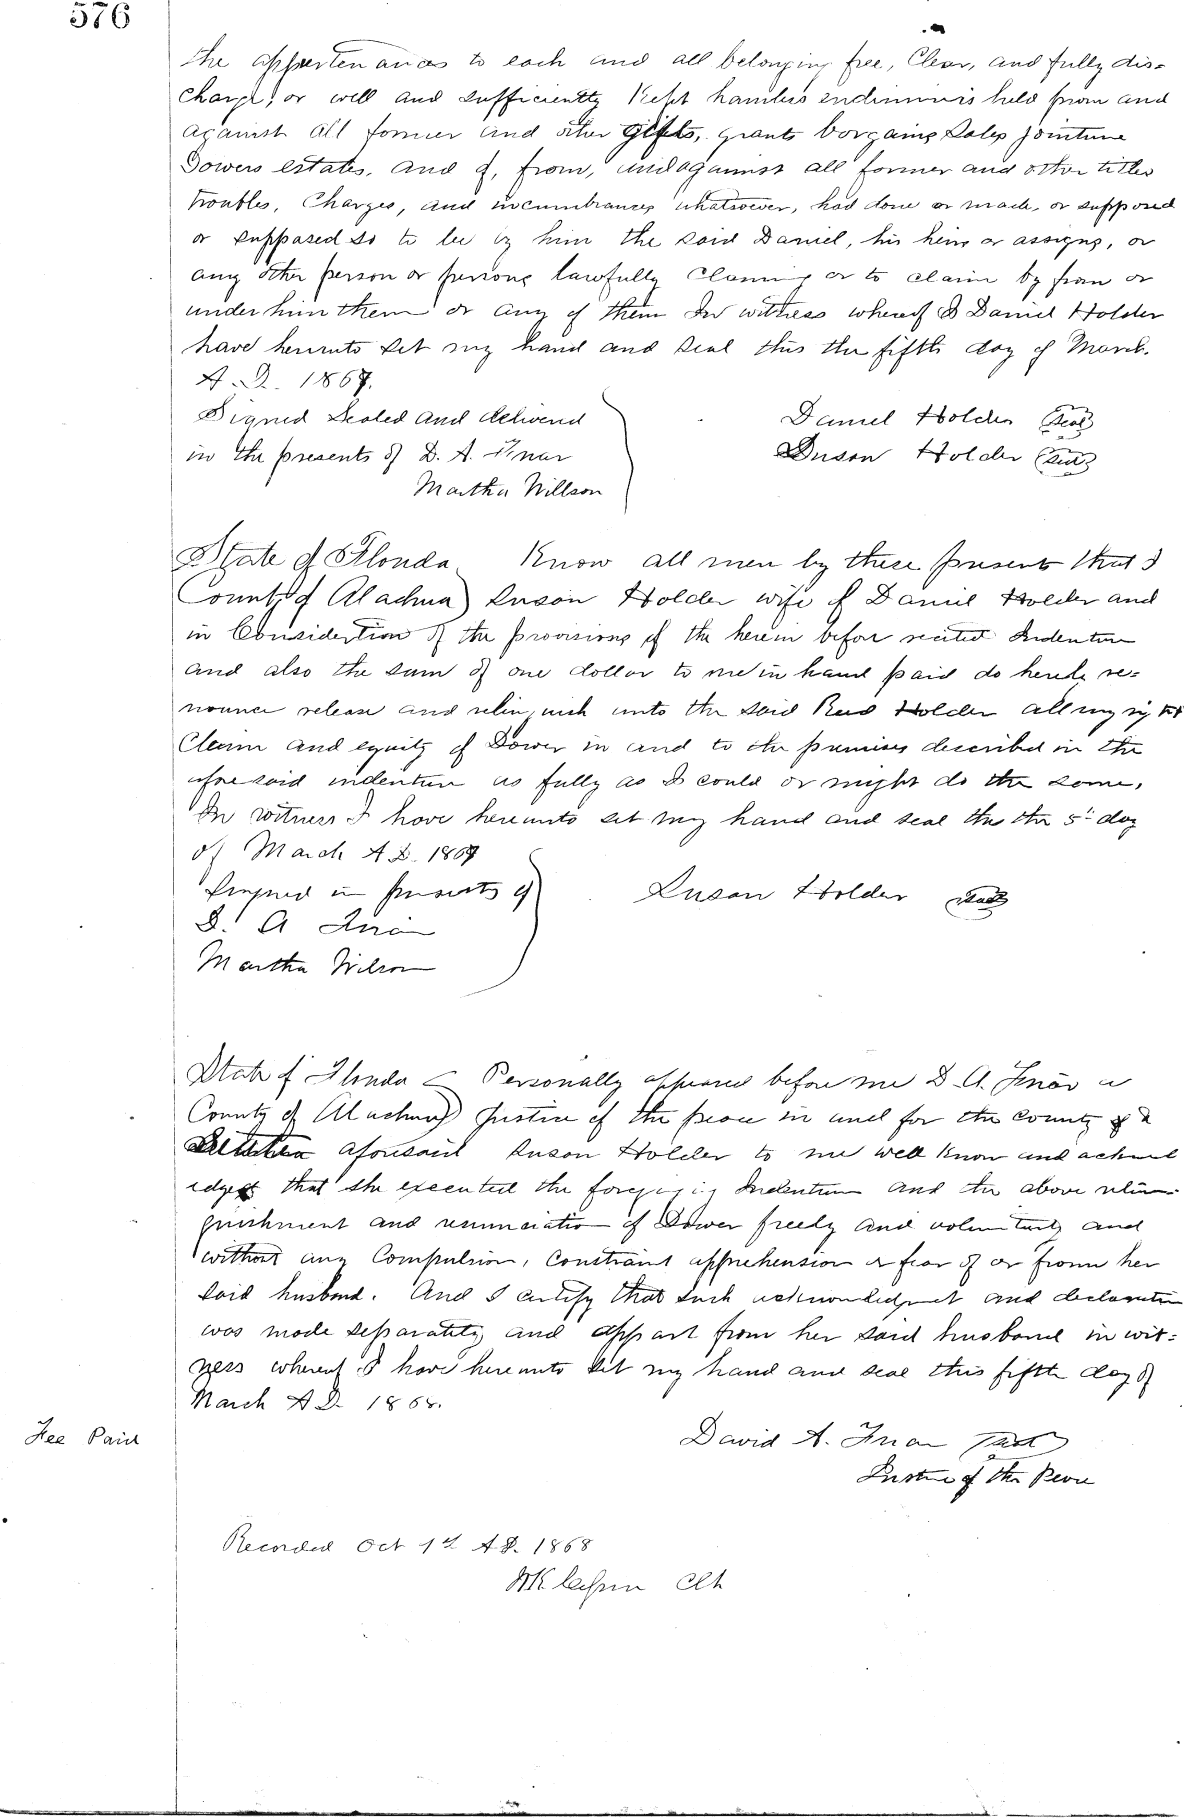 576
the appertenances to each and all belonging free, Clear, and fully dis=
charge, or well and sufficiently Kept hamless endimnis held from and
against all former and other gifts, grants bargains Sales jointure
Dowers estates, and of, from, and against all former and other titles
troubles, Charges, and incumbrances whatsoever, had done or made, or supposed
or supposed so to be by him the said Daniel, his heirs or assigns, or
any other person or persons lawfully Claming or to claim by from or
under him them or any of them In witness whereof I Daniel Holder
have hereunto set my hand and seal this the fifth day of March.
A.D. 1867.
Signed Sealed and delivered
Daniel Holder (Seal)
in the presents of D. A.
Suson Holder (Seal)
Martha Willson
State of Florida Know all men by these presents that I
County of Alachua) Suson Holder wife of Daniel Holder and
in Considertion of the provisions of the herein before recited Indenture
and also the sum of one dollar to me in hand paid do hereby re=
nounce release and relinquish unto the said Holder all my right
Claim and equity of Dower in and to the premises described in the
aforesaid indenture as fully as I could or might do the same,
In witness I have hereunto set my hand and seal this the 5th day
of March A.D. 1867
Singned in presents of
Susan Holder (Seal)
D. A
Martha Wilson
State of Florida Personally appeared before me D. A. a
County of Alachua) Justice of the peace in and for the County &
aforesaid Suson Holder to me well Know and acknowl
edges that she executed the foregoing Indenture and the above relin=
quishment and renunciation of Dower freely and voluntarily and
without any Compulsion, Constraint apprehension or fear of or from her
said husband. And I certify that such acknowledgment and declaration
was made separately and appart from her said husband in wit=
ness whereof I have hereunto set my hand and seal this fifth day of
March A.D. 1868.
Fee Paid
David A. (Seal)
Justice of the Peace
Recorded Oct 1st A.D. 1868
Clk